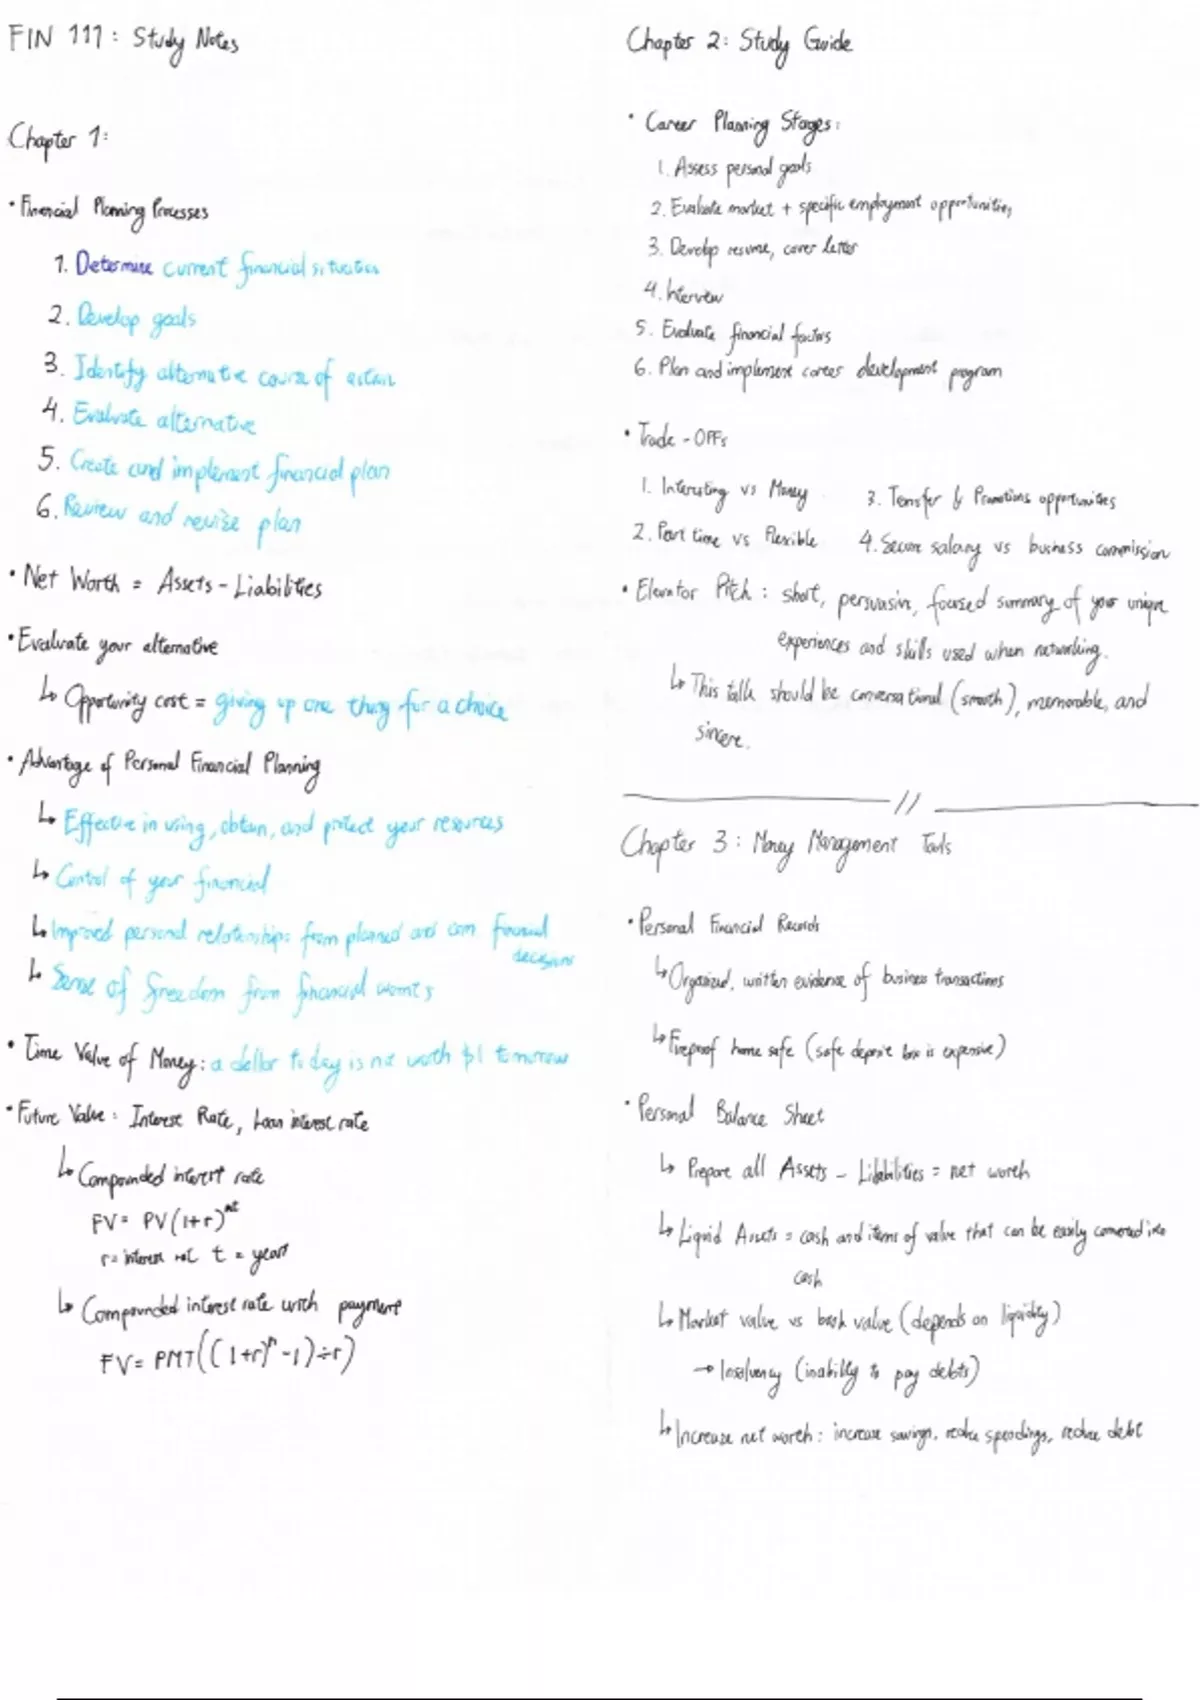 FIN 111: Study Notes
Chapter 1:
• Financial Planning Processes
1. Determine current financial situation
2. Develop goals
3. Identify alternative course of action
4. Evaluate alternative
5. Create and implement financial plan
6. Review and revise plan
• Net Worth = Assets - Liabilities
• Evaluate your alternative
↳ Opportunity cost = giving up one thing for a choice
• Advantage of Personal Financial Planning
↳ Effective in using, obtain, and protect your resources
↳ Control of your financial
↳ Improved personal relationships from planned and com. financial
decisions
↳ Sense of freedom from financial
• Time Value of Money: a dollar today is not worth $1 tomorrow
• Future Value: Interest Rate, Loan interest rate
↳ Compounded interest rate
FV = PV(1+r)
r = interest t = year
↳ Compounded interest rate with payment
FV = PMT(((1+r)^n - 1) ÷ r)
Chapter 2: Study Guide
• Career Planning Stages:
1. Assess personal goals
2. Evaluate market + specific employment opportunities
3. Develop resume, cover letter
4. Interview
5. Evaluate financial factors
6. Plan and implement career development program
• Trade-OFFs
1. Interesting vs Money 3. Transfer & Promotions opportunities
2. Part time vs Flexible 4. Secure salary vs business commission
• Elevator Pitch: short, persuasive, focused summary of your unique
experiences and skills used when networking.
↳ This talk should be conversational (smooth), memorable, and
sincere.
//
Chapter 3: Money Management Tools
• Personal Financial Records
↳ Organized, written evidence of business transactions
↳ Fireproof home safe (safe deposit box is expensive)
• Personal Balance Sheet
↳ Prepare all Assets - Liabilities = net worth
↳ Liquid Assets = cash and items of value that can be easily converted into
cash
↳ Market value vs book value (depends on liquidity)
→ Insolvency (inability to pay debts)
↳ Increase net worth: increase savings, reduce spendings, reduce debt